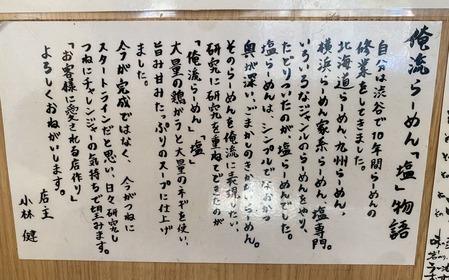 俺流らーめん「塩」物語
自分は渋谷で10年間らーめんの
修業をしてきました。
北海道らーめん、九州らーめん、
横浜らーめん家系らーめん、塩専門。
いろいろなジャンルのらーめんをやり、
たどりついたのが塩らーめんでした。
塩らーめんは、シンプルで なおかつ
奥が深い、ごまかしのきかないらーめん。
そのらーめんを俺流に表現したい、
研究に研究を重ねてできたのが
「俺流らーめん」「塩」
大量の鶏がらと大量のネギを使い、
旨み甘みたっぷりのスープに仕上げ
ました。
今が完成ではなく、今がつねに
スタートラインだと思い、日々研究し
つねにチャレンジャーの気持ちで望みます。
「お客様に愛される店作り」
よろしくおねがいします。
店主
小林 健